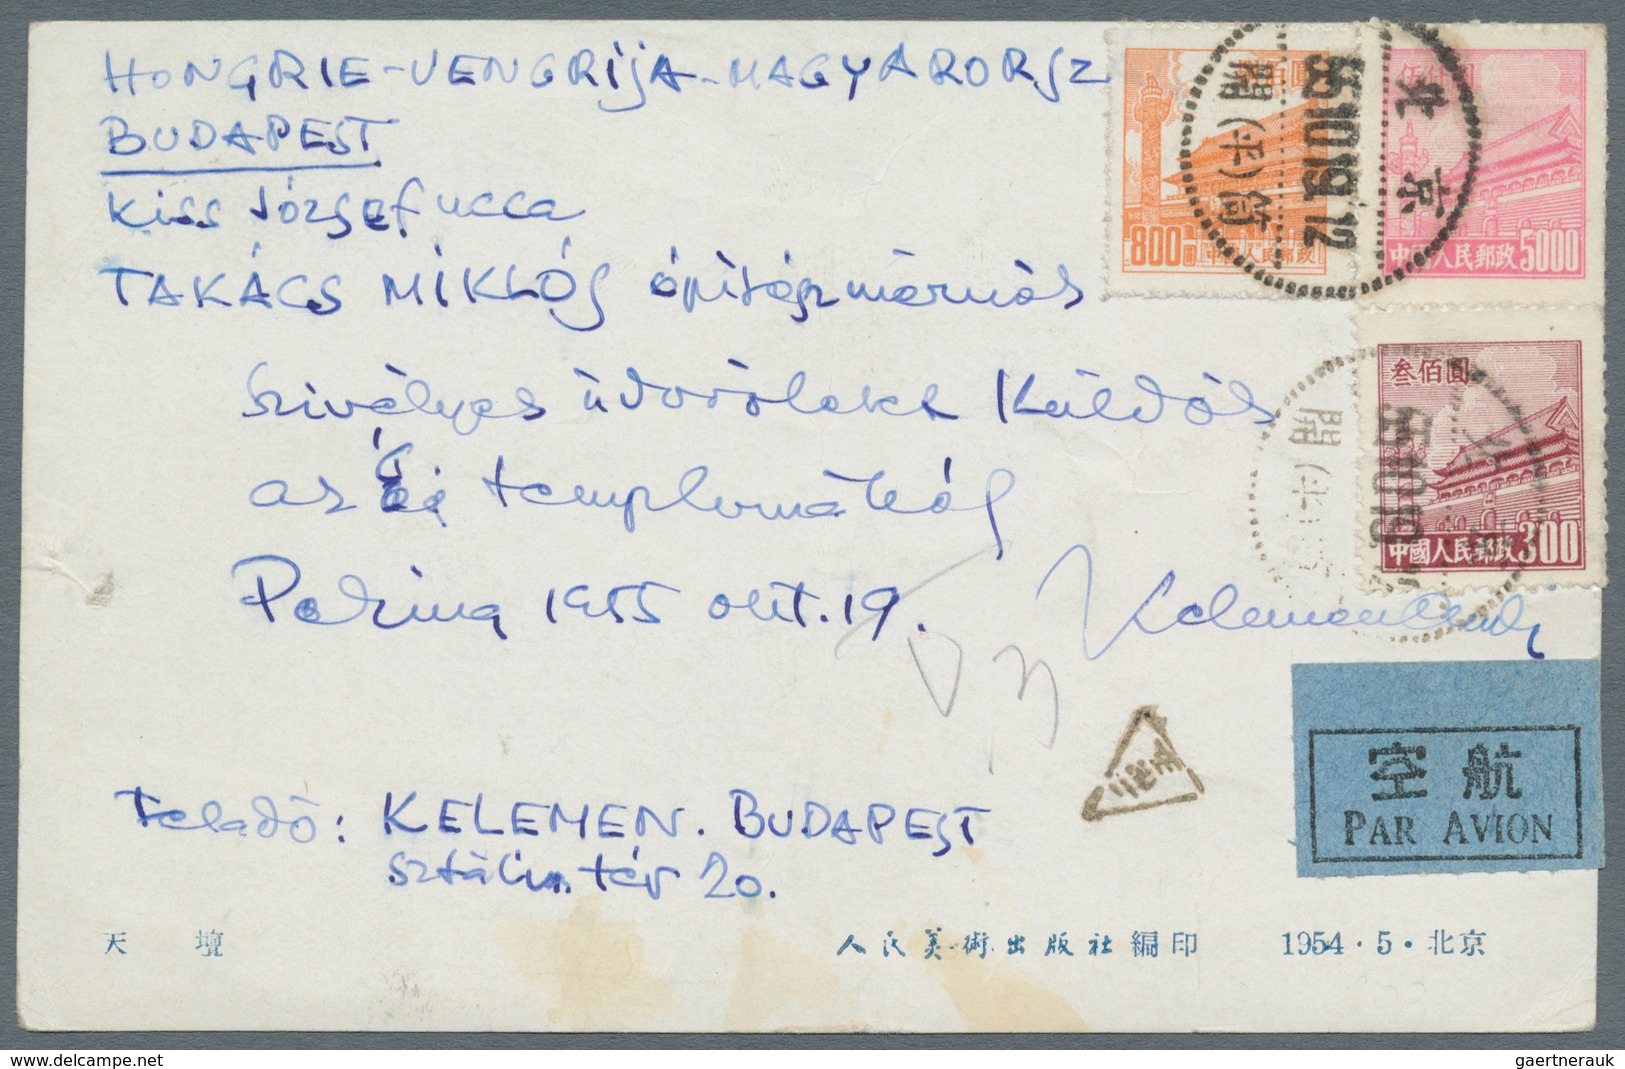 HONGRIE-VENGRIJA-MAGYARORSZ
BUDAPEST
Kiss József ucca
TAKÁCS MIKLÓS építészmérnök
Szivélyes üdvözletet küldök
az Ég templomától
Peking 1955 okt. 19.
Feladó: KELEMEN. BUDAPEST
Sztálin tér 20.
捌佰圓
800
中國人民郵政
伍仟圓
中國人民郵政 5000
叁佰圓
中國人民郵政 300
北京
55.10.19.12
空航
PAR AVION
天壇
人民美術出版社編印 1954·5·北京
gaertnerauk @ delcampe.net